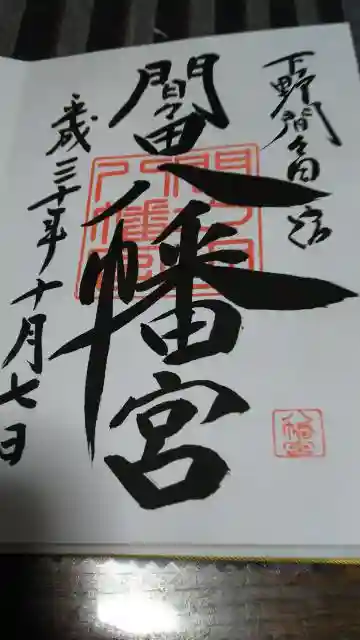 下野間々田宿
間々田八幡宮
平成三十年十月七日
間々田八幡宮